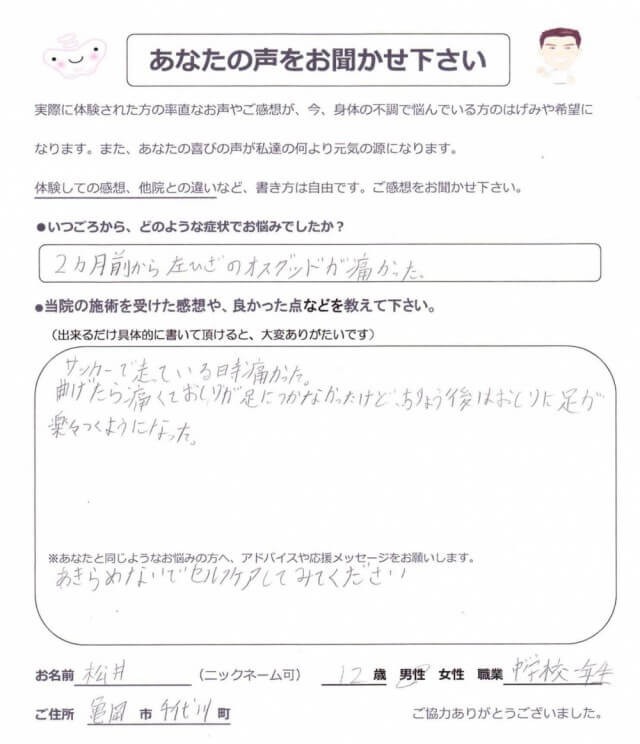 あなたの声をお聞かせ下さい
実際に体験された方の率直なお声やご感想が、今、身体の不調で悩んでいる方のはげみや希望に
なります。また、あなたの喜びの声が私達の何より元気の源になります。
体験しての感想、他院との違いなど、書き方は自由です。ご感想をお聞かせ下さい。
●いつごろから、どのような症状でお悩みでしたか？
2カ月前から左ひざのオスグッドが痛かった。
●当院の施術を受けた感想や、良かった点などを教えて下さい。
（出来るだけ具体的に書いて頂けると、大変ありがたいです）
サッカーで走っている時痛かった。
曲げたら痛くておしりが足につかなかったけど、ちりょう後はおしりに足が
楽々つくようになった。
※あなたと同じようなお悩みの方へ、アドバイスや応援メッセージをお願いします。
あきらめないでセルフケアしてみてください
お名前 松井 （ニックネーム可） 12 歳 男性 女性 職業 中学校一年生
ご住所 亀岡 市 千代川 町 ご協力ありがとうございました。